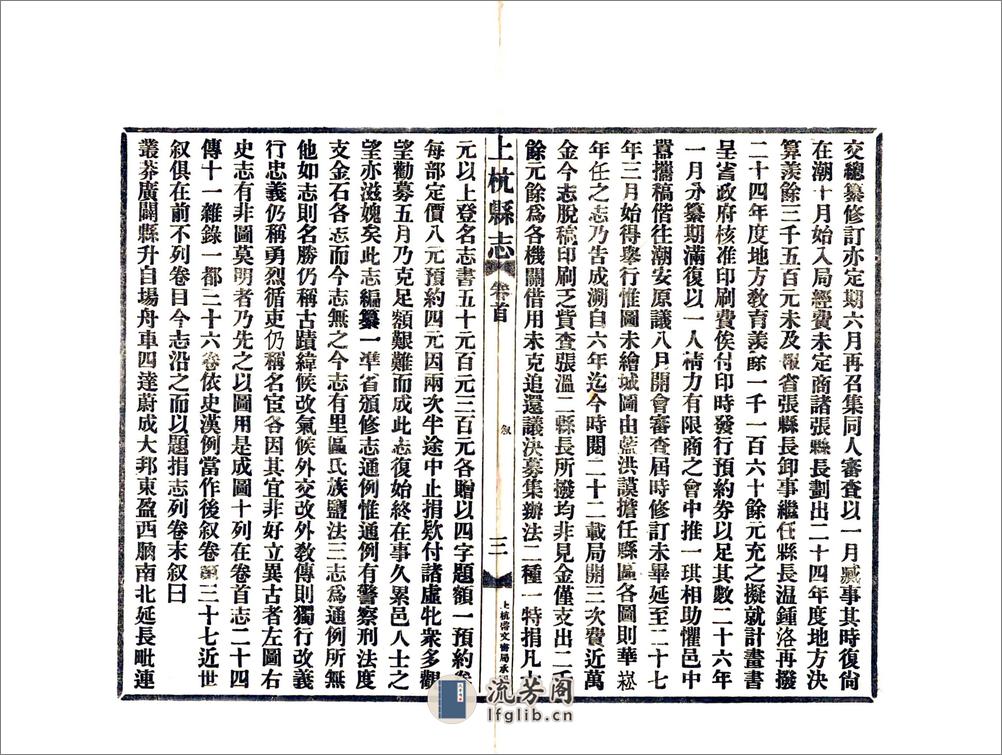 交總纂修訂亦定期六月再召集同人審查以一月臧事其時復尙
在潮十月始入局經費未定商諸張縣長劃出二十四年度地方決
算羨餘三千五百元未及報省張縣長卸事繼任縣長温鍾洛再撥
二十四年度地方敎育羨餘一千一百六十餘元充之擬就計畫書
呈省政府核准印刷費俟付印時發行預約券以足其數二十六年
一月分纂期滿復以一人精力有限商之會中推一琪相助懼邑中
囂攜稿偕往潮安原議八月開會審查屆時修訂未畢延至二十七
年三月始得舉行惟圖未繪城圖由藍洪謨擔任縣區各圖則華崧
年任之志乃告成溯自六年迄今時閱二十二載局開三次費近萬
金今志脫稿印刷乏貲查張溫二縣長所撥均非見金僅支出二千
餘元餘爲各機關借用未克追還議決募集辦法二種一特捐凡十
上杭縣志
卷首
叙
三
上杭啓文書局承
元以上登名志書五十元百元三百元各贈以四字題額一預約券
每部定價八元預約四元因兩次半途中止捐欵付諸虛牝衆多觀
望勸募五月乃克足額艱難而成此志復始終在事久累邑人士之
望亦滋媿矣此志編纂一準省頒修志通例惟通例有警察刑法度
支金石各志而今志無之今志有里區氏族鹽法三志爲通例所無
他如志則名勝仍稱古蹟緯候改氣候外交改外敎傳則獨行改義
行忠義仍稱勇烈循吏仍稱名宦各因其宜非好立異古者左圖右
史志有非圖莫明者乃先之以圖用是成圖十列在卷首志二十四
傳十一雜錄一都二十六卷依史漢例當作後叙卷第三十七近世
叙俱在前不列卷目今志沿之而以題捐志列卷末叙曰
叢莽廣闢縣升自場舟車四達蔚成大邦東盈西朒南北延長毗連
流芳阁
lfglib.cn